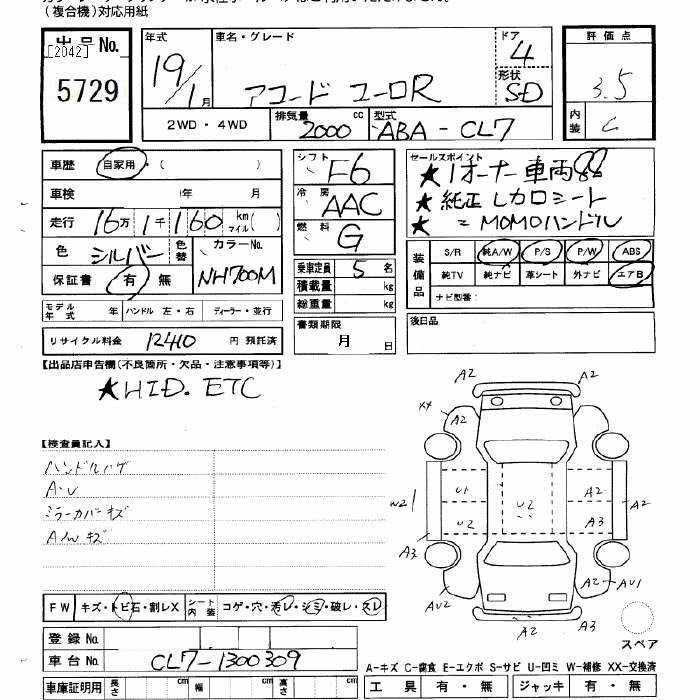 (複合機)対応用紙
出品No.
[2042]
5729
年式 車名・グレード ドア 評価点
19/1月 アコード ユーロR 4 3.5
形状 SD
内装 C
2WD・4WD 排気量 2000 cc 型式 ABA-CL7
車歴 自家用・( )
シフト F6
セールスポイント
★1オーナー車両
★純正レカロシート
★ = MOMOハンドル
車検 年 月
冷房 AAC
走行 16万 1千 160 km マイル( )
燃料 G
色 シルバー 色替 カラーNo. NH700M
保証書 有・無
乗車定員 5 名
積載量 kg
総重量 kg
装備品 S/R 純A/W P/S P/W ABS
純TV 純ナビ 革シート 外ナビ エアB
ナビ型番:
モデル年式 年 ハンドル 左・右 ディーラー・並行
書類期限 月 日
後日品
リサイクル料金 12410 円 預託済
【出品店申告欄(不良箇所・欠品・注意事項等)】
★HID. ETC
【検査員記入】
ハンドルハゲ
A・U
ミラーカバーキズ
A/Wキズ
A2 A2
XX A2
W2 U1 U2 A2 A2
U2 A3
A3 A2 AU1
AU2
A2 A3
スペア
FW キズ・トビ石・割レX シート内装 コゲ・穴・汚レ・シミ・破レ・スレ
登録No.
車台No. CL7-1300309
A-キズ C-腐食 E-エクボ S-サビ U-凹ミ W-補修 XX-交換済
車庫証明用 長さ cm 幅 cm 高さ cm 工具 有・無 ジャッキ 有・無